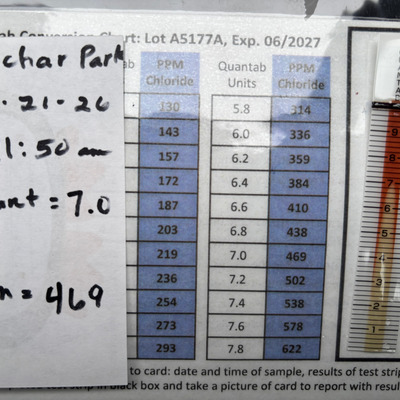 Chart: Lot A5177A, Exp. 06/2027
char Park
21-26
:50 am
= 7.0
= 469
PPM Chloride Quantab Units PPM Chloride
130 5.8 314
143 6.0 336
157 6.2 359
172 6.4 384
187 6.6 410
203 6.8 438
219 7.0 469
236 7.2 502
254 7.4 538
273 7.6 578
293 7.8 622
9
8
7
6
5
4
3
2
1
to card: date and time of sample, results of test strip
black box and take a picture of card to report with resul